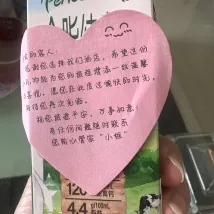 的客人:
感谢您选择我们酒店,希望这份
礼物能为您的旅途增添一丝温馨
喜悦,愿您在此度过愉快的时光,
期待您再次光临。
祝您旅途平安,万事如意!
有任何问题随时联系
您贴心管家“小姐”
120
4.4
g/100mL